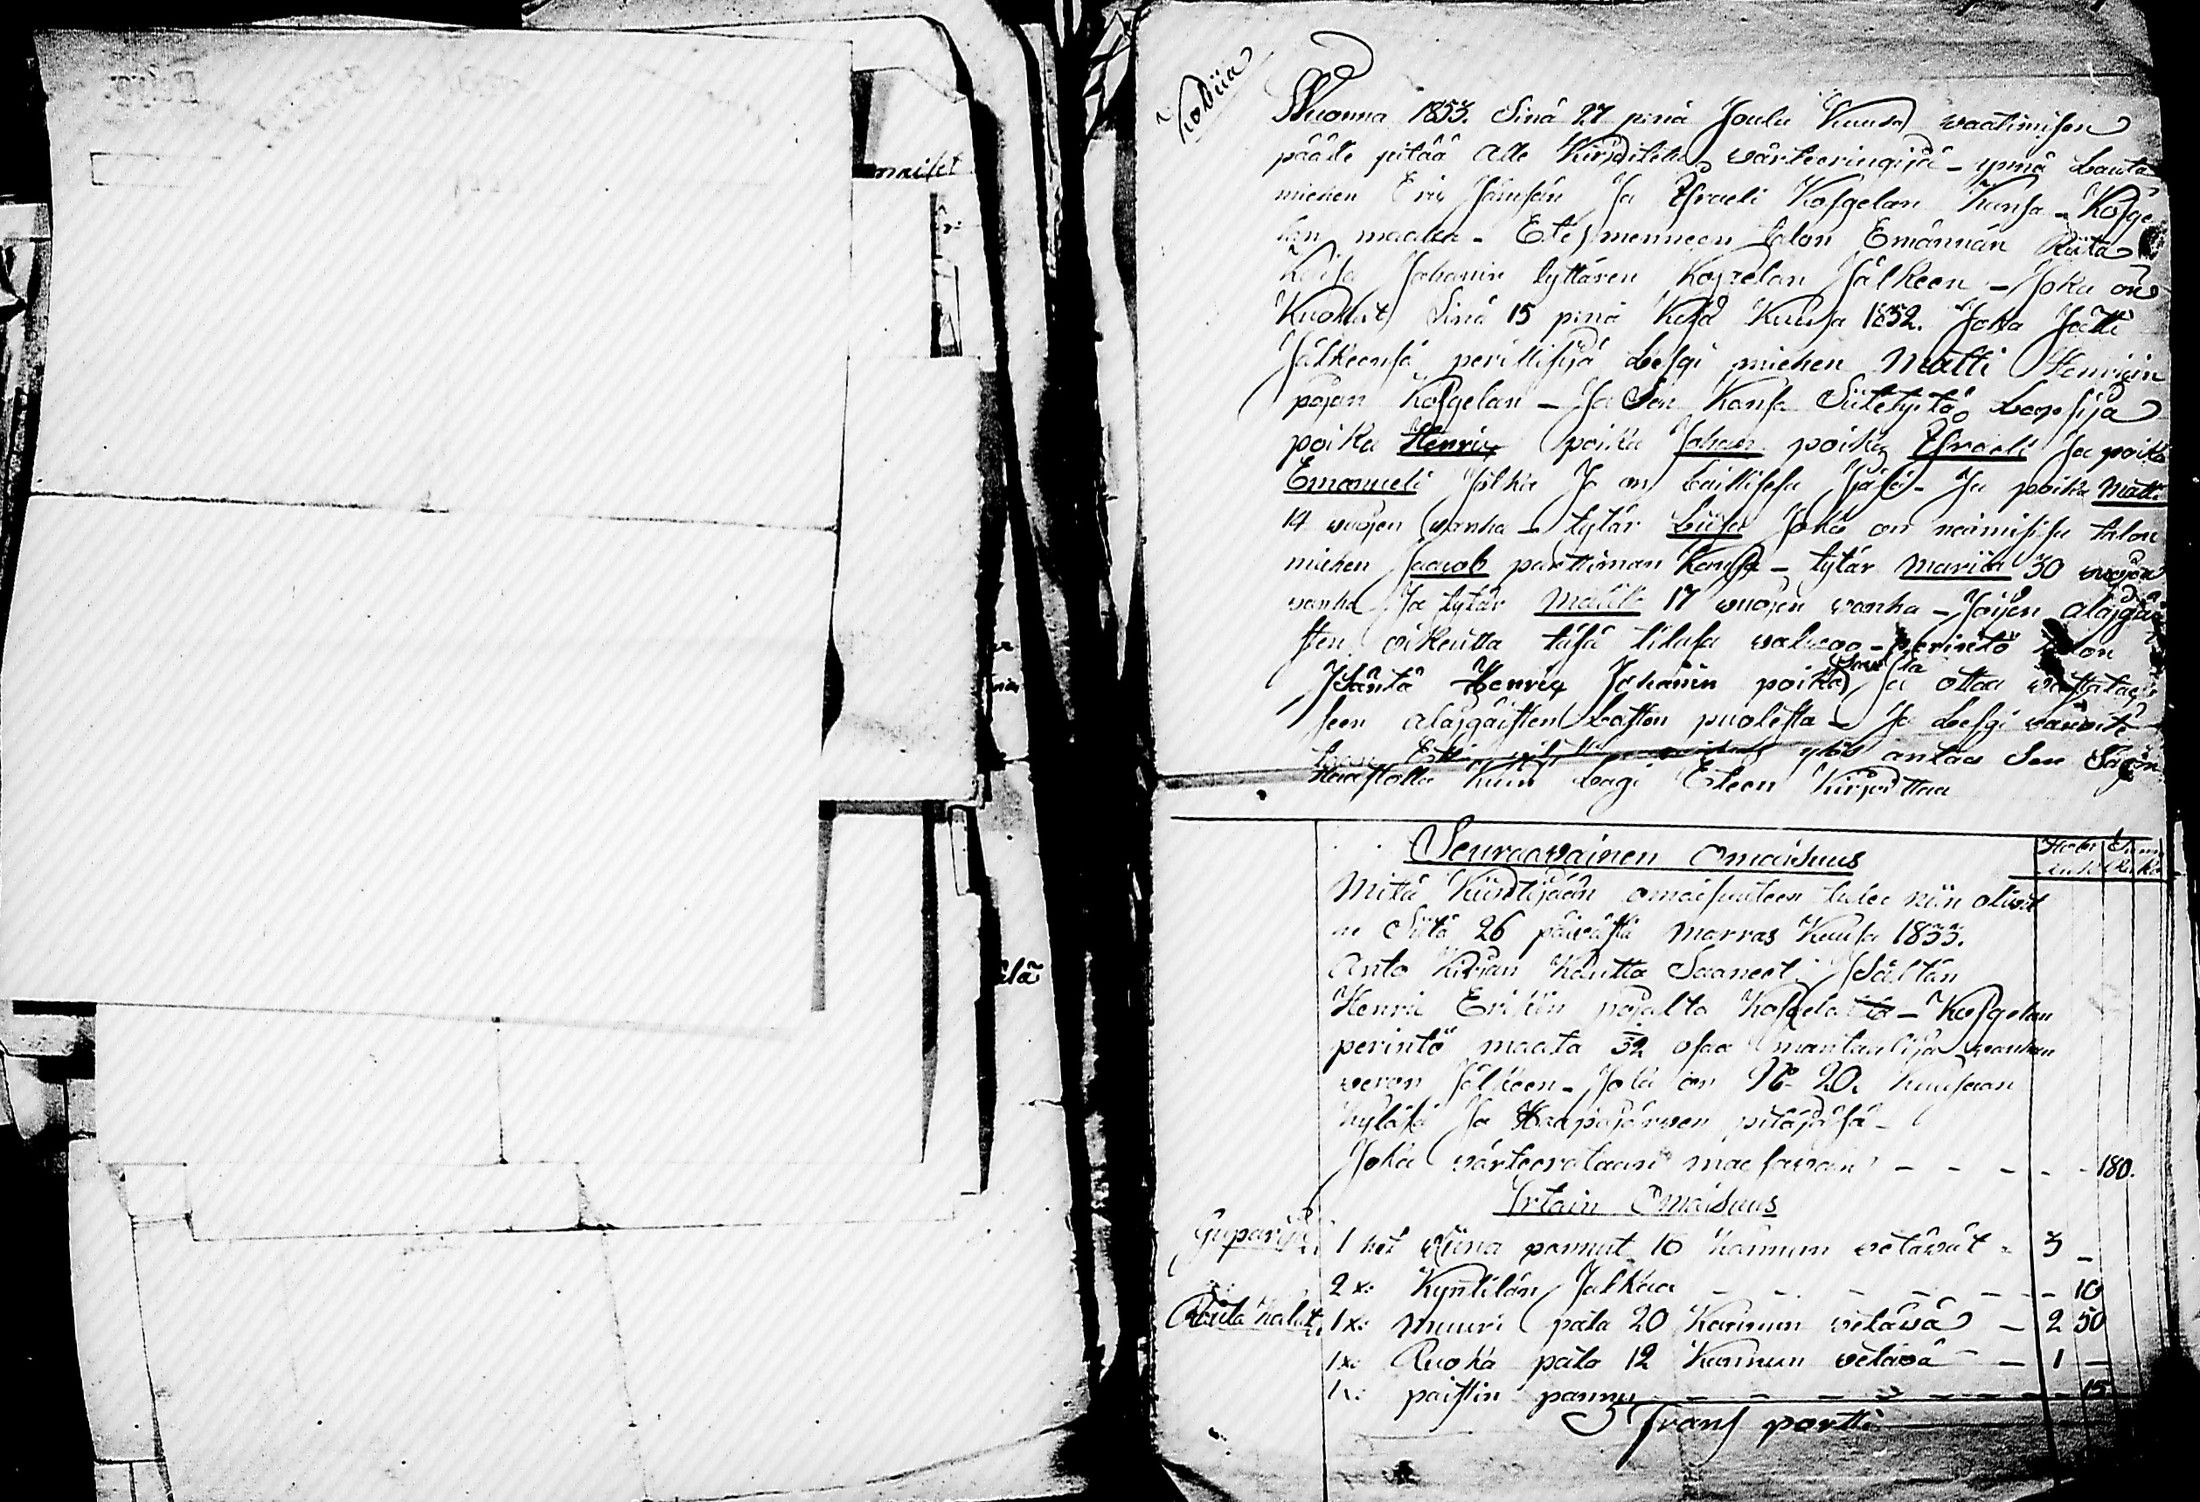 maiset
elä
Kobiia
Wuonna 1853. Sinä 27 pnä Joulu Kuusa waatimisen
päälle pitää alle Kirjoitettu wärteeringiä - ynnä Lauta
miehen Eric Jämsän Ja Israeli Kosgelan Kansa - Kosge
lan maalla - Edesmenneen talon Emännän Riita
Kaisa Johanin tyttären Kosgelan Jälkeen - Joka on
Kuollut Sinä 15 pnä Kesä Kuusa 1852. Joka Jätti
Jälkeensä perillisiä Lesgi miehen Matti Henricin
pojan Kosgelan - Ja Sen Kansa Siitetyitä Lapsija
poika Henric poika Johan poika Israeli Ja poika
Emanueli Jotka Jo on laillisesa Jäsä - Ja poika Matti
14 wuojen wanha - tytär Liisa Joka on naimisisa talon
miehen Jaacob parttiman Kansa - tytär Mariia 30 wuojen
wanha Ja tytär 17 wuojen wanha - Joijen alajgäi
sten oikeutta täsä tilasa walwoo - perintö talon
Isäntä Henric Johanin poika Ja ottaa wastatag
seen alajgäisten lasten puolesta - Ja Lesgi
antaa Sen
Kuin Lagi Eteen Kirjoittaa
Seuraawainen Omaisuus
Mitä Kiintijään omaisuuteen tulee niin oliwat
ne Siitä 26 päiwästä Marras Kuusa 1833.
Anto Kirjan Kautta Saaneet Isältän
Henric Erikin pojalta Kosgelalta - Kosgelan
perintö maata 32 osaa mantaalija wanhan
weron Jälkeen - Jota on No 20. Kuusaan
Kyläsä Ja Haapajärwen pitäjäsä -
Joka wärteerataan maasawan - - - - - 180.
Irtain Omaisuus
Guparija 1 Wiina pannut 10 Kannun wetäwät - 3 -
2 x: Kyntilän Jalkaa - - - - - - 10
Rauta Kalut 1 x: muuri pata 20 Kannun wetäwä - 2 50
1 x: Ruoka pata 12 Kannun wetäwä - - 1 -
1 x: paistin pannu - - - - - - - - 15
Transportti